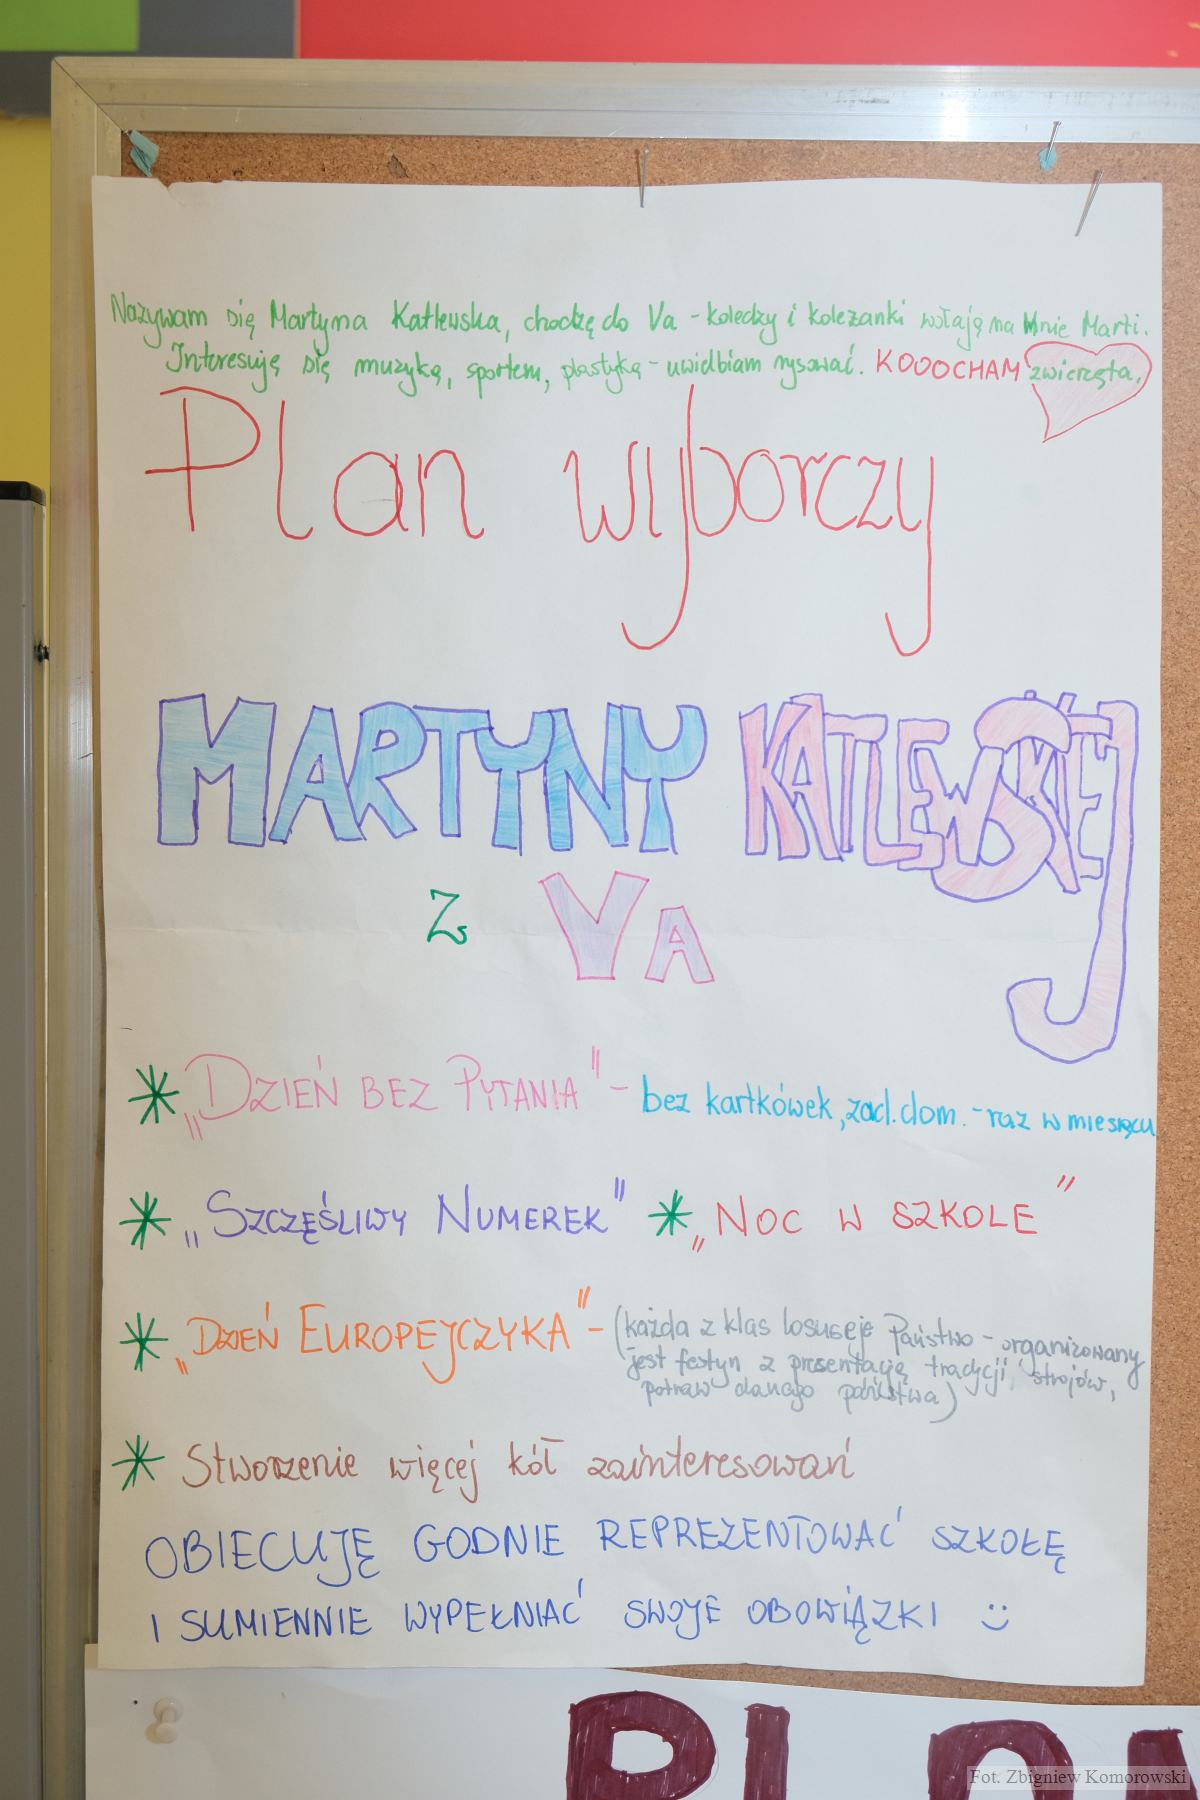 Nazywam się Martyna Katlewska, chodzę do Va - koledzy i koleżanki wołają na mnie Marti.
Interesuję się muzyką, sportem, plastyką - uwielbiam rysować. KOOOCHAM zwierzęta.
Plan wyborczy
MARTYNY KATLEWSKIEJ
z Va
* „DZIEŃ BEZ PYTANIA" - bez kartkówek, zad. dom. - raz w miesiącu
* „SZCZĘŚLIWY NUMEREK" * „NOC W SZKOLE"
* „DZIEŃ EUROPEJCZYKA" - (każda z klas losuseje Państwo - organizowany
jest festyn z prezentacją tradycji, strojów,
potraw danego państwa)
* Stworzenie więcej kół zainteresowań
OBIECUJĘ GODNIE REPREZENTOWAĆ SZKOŁĘ
I SUMIENNIE WYPEŁNIAĆ SWOJE OBOWIĄZKI :)
PLAN
Fot. Zbigniew Komorowski